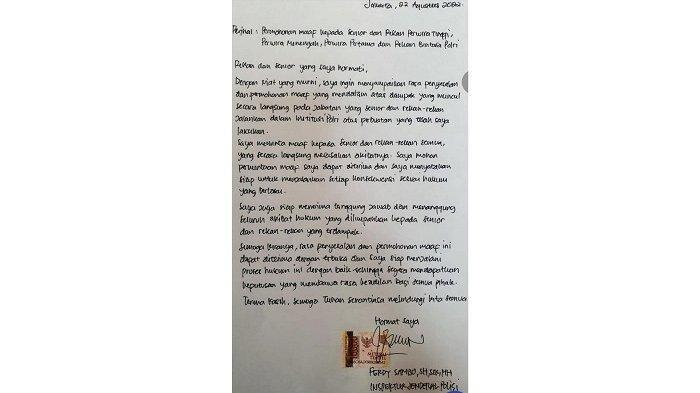 Jakarta, 22 Agustus 2022
Perihal : Permohonan maaf kepada senior dan Rekan Perwira Tinggi,
Perwira Menengah, Perwira Pertama dan Rekan Bintara Polri
Rekan dan senior yang saya hormati,
Dengan niat yang murni, saya ingin menyampaikan rasa penyesalan
dan permohonan maaf yang mendalam atas dampak yang muncul
secara langsung pada jabatan yang senior dan rekan-rekan
jalankan dalam institusi Polri atas perbuatan yang telah saya
lakukan.
Saya meminta maaf kepada senior dan rekan-rekan semua,
yang secara langsung merasakan akibatnya. Saya mohon
permintaan maaf saya dapat diterima dan saya menyatakan
siap untuk menjalankan setiap konsekuensi sesuai hukum
yang berlaku.
Saya juga siap menerima tanggung jawab dan menanggung
seluruh akibat hukum yang dilimpahkan kepada senior
dan rekan-rekan yang terdampak.
Semoga kiranya, rasa penyesalan dan permohonan maaf ini
dapat diterima dengan terbuka dan saya siap menjalani
proses hukum ini dengan baik sehingga segera mendapatkan
keputusan yang membawa rasa keadilan bagi semua pihak.
Terima kasih, semoga Tuhan senantiasa melindungi kita semua
Hormat saya
FERDY SAMBO, SH, SIK, MH
INSPEKTUR JENDERAL POLISI